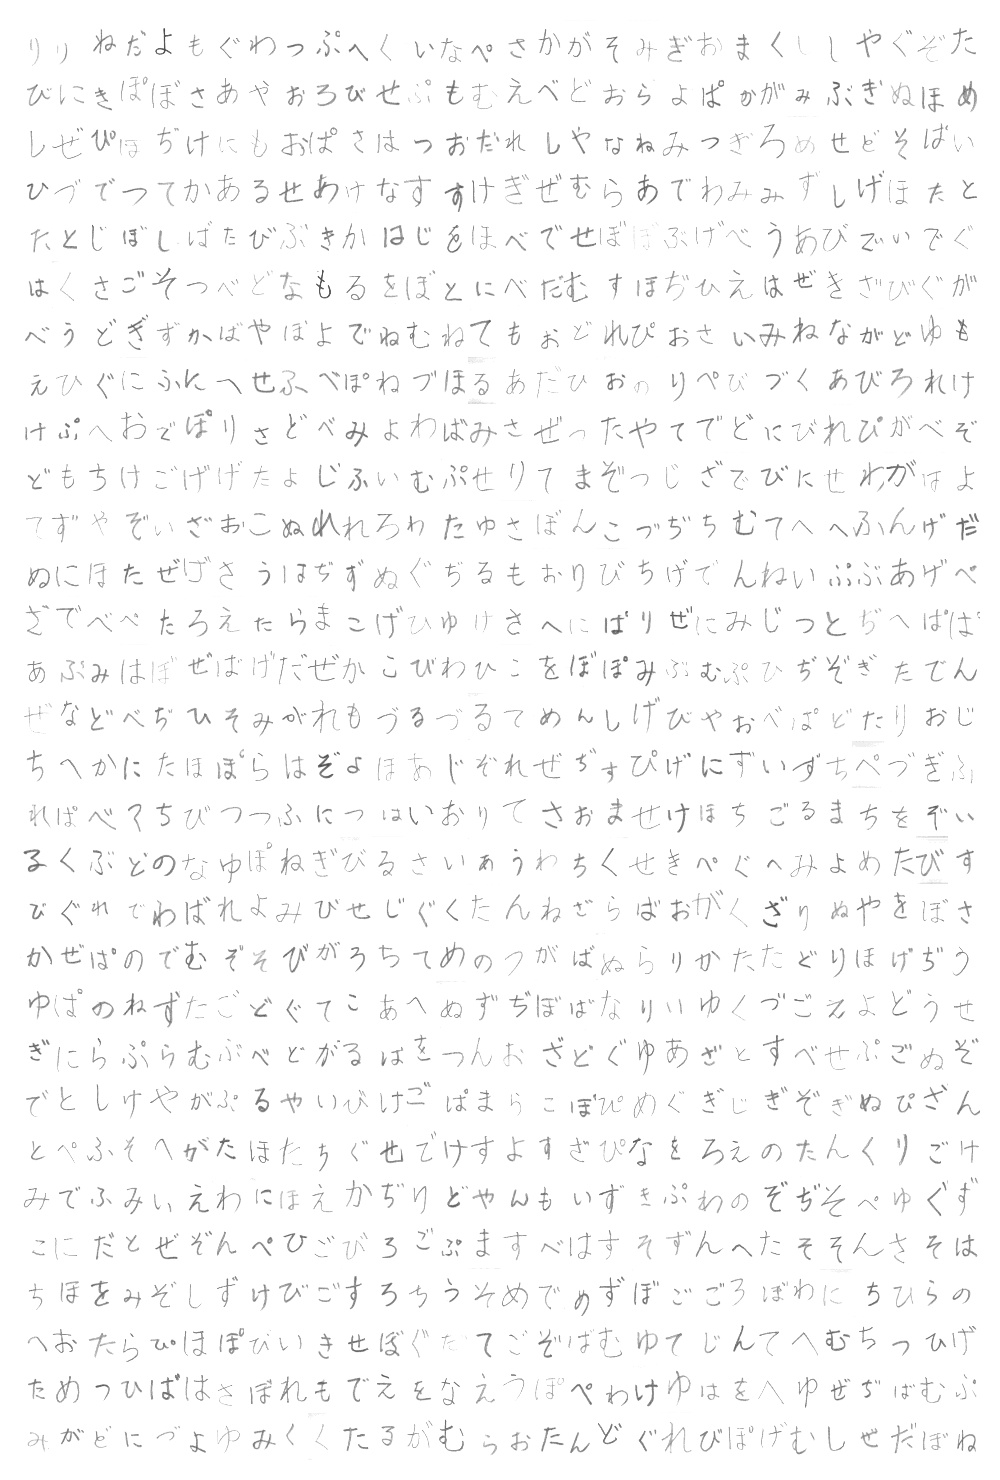 りりねだよもぐわっぷへくいなぺさかがそみぎおまくししやぐぞた
びにきぽぼさあやおろびせぷもむえべどおらよぱかがみぶぎぬほめ
しぜぴほぢけにもおぱさはつおだれしやなねみつぎろめせどそばい
ひづでつてかあるせあけなすすけぎぜむらあでわみみずしげほたと
たとじぼしばたびぶきかはじをほべでせぼぼぶげべうあびでいでぐ
はくさごそつべどなもるをぼとにべだむすほぢひえはぜきざびぐが
べうどぎずかばやぼよでねむねてもおどれぴおさいみねながどゆも
えひぐにふんへせふべぽねづほるあだひおのりぺびづくあびろれけ
けぷへおでぽりさどべみよわばみさぜったやてでどにびれぴがべぞ
どもちけごげげたよじふいむぷせりてまぞつじざでびにせわがはよ
てずやぞいざおこぬれれろわたゆさぼんこづぢちむてへへふんげだ
ぬにほたぜげさうほぢずぬぐぢるもおりびちげでんねいぷぶあげぺ
ざでべぺたろえたらまこげひゆけさへにばりぜにみじつとぢへぱぱ
あぶみはぼぜばげだぜかこびわひこをぼぽみぶむぷひぢぞぎたでん
ぜなどべぢひそみがれもづるづるてめんしげびやおべぱどたりおじ
ちへかにたほぽらはぞよほあじぞれぜぢすぴげにずいずちぺづぎふ
れぱべてちびつつふにつはいおりてさおませけほちごるまちをぞい
るくぶどのなゆぽねぎびるさいあうわちくせきぺぐへみよめたびす
びぐれでわばれよみびせじぐくたんねざらばおがくざりぬやをぼさ
かぜぱのでむぞそびがろちてめのつがばぬらりかたたどりほげぢう
ゆぱのねずたごどぐてこあへぬずぢぼばなりいゆくづごえよどうせ
ぎにらぷらむぶべどがるはをつんおざどぐゆあざとすべせぷごぬぞ
でとしけやがぷるやいびけごぱまらこぼぴめぐぎじぎぞぎぬぴざん
とぺふそへがたほたちぐせでけすよすざぴなをろえのたんくりごけ
みでふみいえわにほえかぢりどやんもいずきぷわのぞぢそぺゆぐず
こにだとぜぞんぺひごびろごぷますべはすそずんへたそそんさそは
ちほをみぞしずけびごすろちうそめでめずぼごごろぼわにちひらの
へおたらぴほぽびいきせぼぐたてごぞばむゆてじんてへむちつひげ
ためつひばはさぼれもでえをなえうぽぺわけゆはをへゆぜぢばむぷ
みがどにづよゆみくくたるがむらおたんどぐれびぽげむしせだぼね